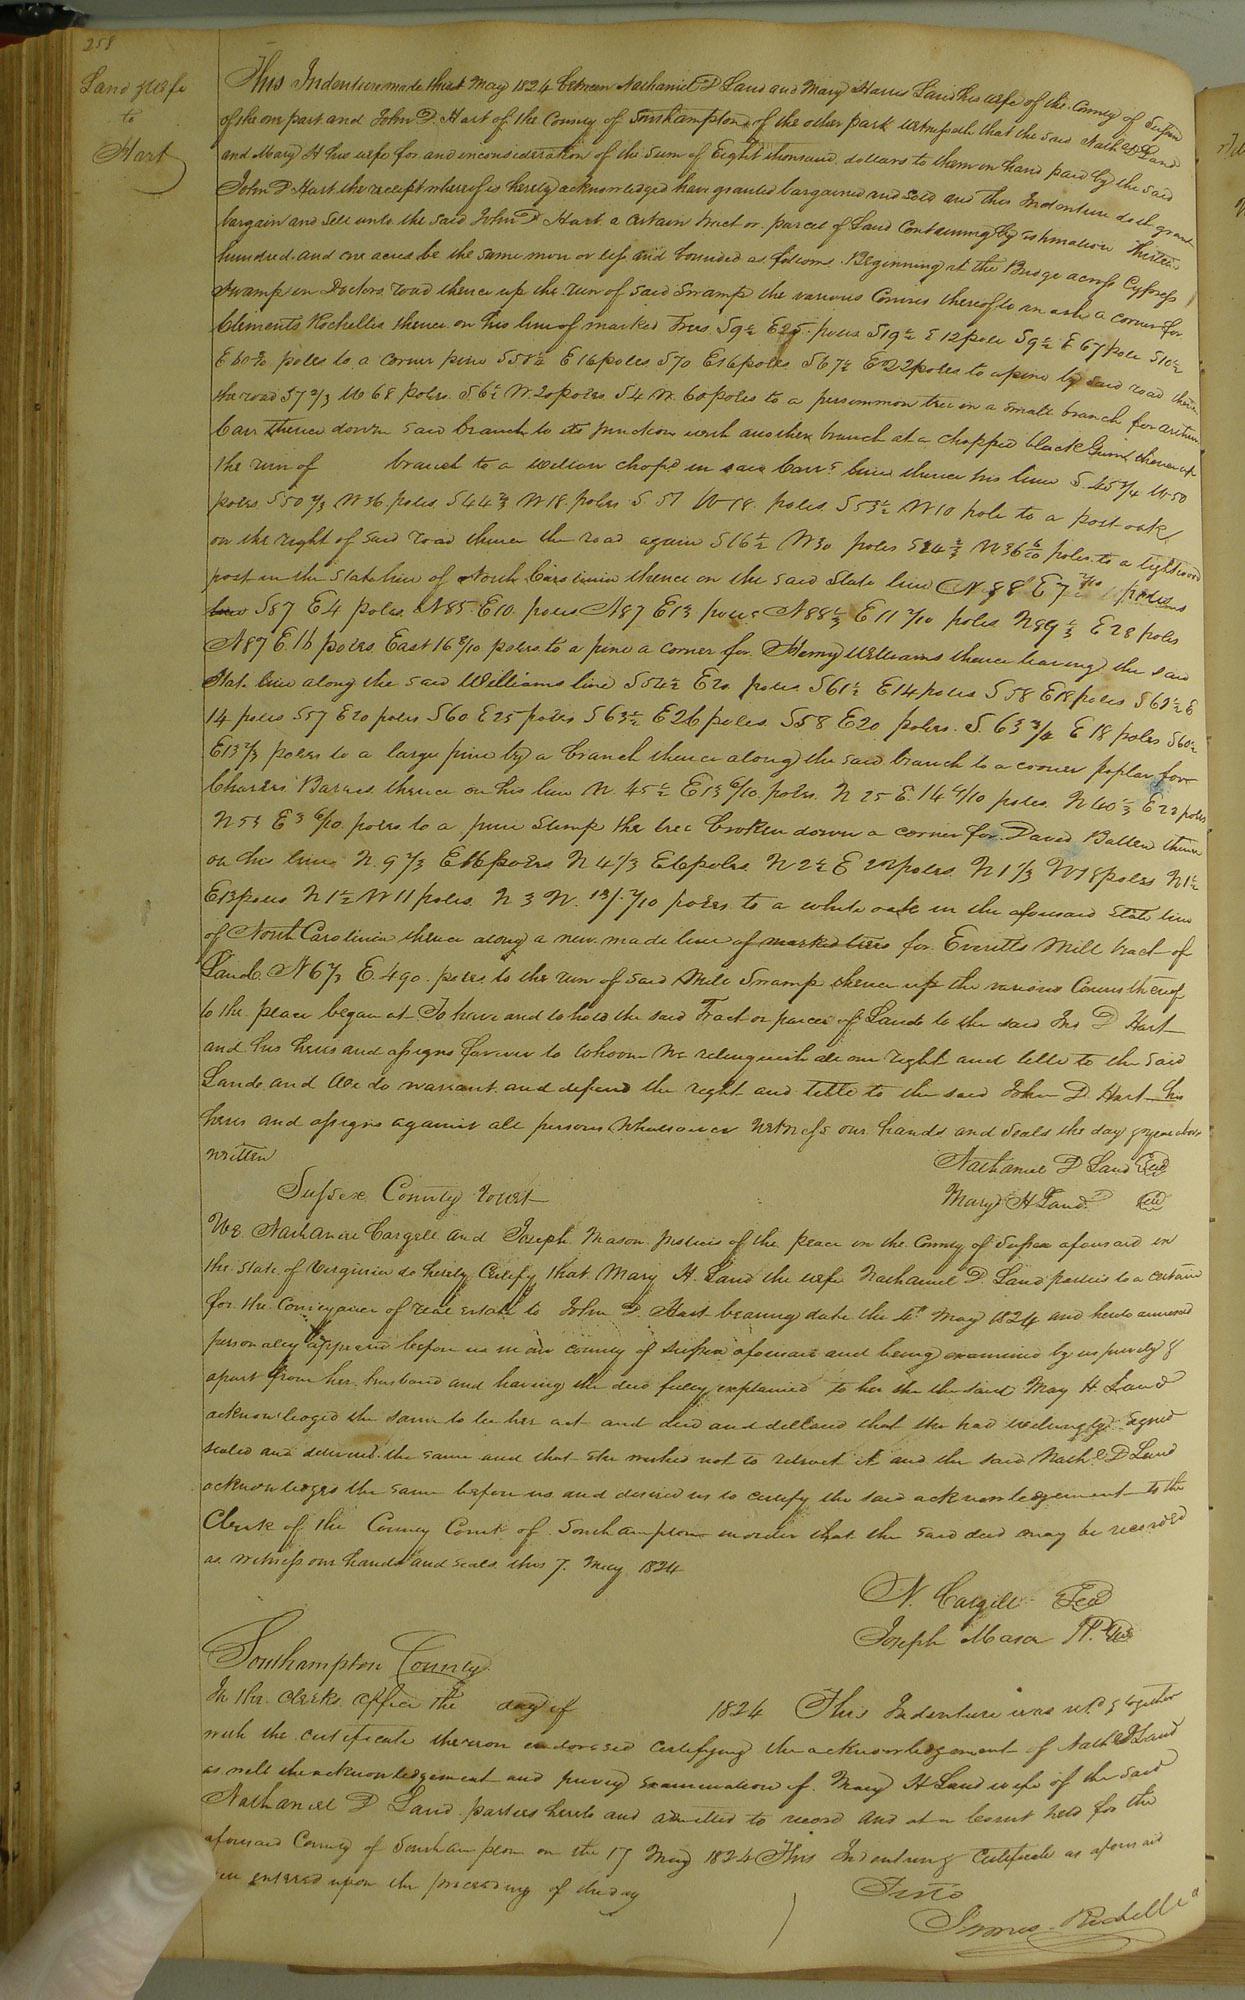 258
Land & wife
to
Hart
This Indenture made this 1st May 1824 between Nathaniel D Land and Mary Harris Land his wife of the County of Sussex
of the one part and John D. Hart of the County of Southampton of the other part witnesseth that the said Nathl D Land
and Mary H his wife for and in consideration of the Sum of Eight thousand dollars to them in hand paid by the said
John D Hart the receipt whereof is hereby acknowledged have granted bargained and sold and this Indenture doth grant
bargain and sell unto the said John D Hart a certain tract or parcel of Land Containing by estimation thirteen
hundred and one acres be the same more or less and bounded as follows. Beginning at the Bridge across Cypress
Swamp in Doctors road thence up the run of said Swamp the various Courses thereof to an ash a corner for
Clements Rochelle thence on his line of marked Trees S9½ E25 poles S19½ E12 pole S9½ E 67 pole S10½
E60½ poles to a corner pine S58½ E16 poles S70 E16 poles S67½ E22 poles to a pine by said road thence
the road S7⅔ W68 poles S.6½ W.20 poles S4 W. 60 poles to a persimmon tree in a small branch for
Carr thence down said branch to its junction with another branch at a chopped black Gum thence up
the run of branch to a willow chopd in said Carrs line thence his line S.45¾ W 50
poles S50⅔ W36 poles S44⅔ W18 poles S.57 W18 poles S53½ W10 pole to a post oak
on the right of said road thence the road again S16½ W30 poles S24⅔ W36 6/10 poles to a lightwood
post in the State line of North Carolina thence on the said State line N88 E7 poles
S87 E4 poles N85 E10 poles N87 E13 poles N88⅓ E11 7/10 poles N89⅓ E28 poles
N87 E.16 poles East 16 8/10 poles to a pine a corner for Henry Williams thence leaving the said
Stat. line along the said Williams line S54½ E20 poles S61½ E14 poles S58 E18 poles S62½ E
14 poles S57 E20 poles S60 E25 poles S63½ E26 poles S58 E20 poles S.63¾ E 18 poles S60½
E13⅔ poles to a large pine by a branch thence along the said branch to a corner poplar for
Charles Barnes thence on his line N 45½ E13 6/10 poles N 25 E.14 4/10 poles N40⅓ E22 poles
N53 E3 6/10 poles to a pine Stump the tree broken down a corner for David Batten thence
on his line N.9⅔ E16 poles N4⅓ E6 poles N2½ E22 poles N1⅓ W18 poles N1½
E13 poles N1½ W11 poles N 3 W. 13 7/10 poles to a white oak in the aforesaid State line
of North Carolina thence along a new made line of marked trees for Everitts Mill tract of
Land N6⅔ E.490 poles to the run of said Mill Swamp thence up the various Courses thereof
to the place began at To have and to hold the said Tract or parcel of Lands to the said Jno D Hart
and his heirs and assigns forever to whom we relinquish all our right and title to the said
Lands and We do warrant and defend the right and title to the said John D. Hart his
heirs and assigns against all persons whatsoever Witness our hands and Seals the day & year above
written
Nathaniel D Land Seal
Mary H Land Seal
Sussex County towit
We Nathaniel Cargill and Joseph Mason Justices of the peace in the County of Sussex aforesaid in
the State of Virginia do hereby Certify that Mary H. Land the wife Nathaniel D. Land parties to a certain
for the Conveyance of real estate to John D. Hart bearing date the 1st May 1824 and hereto annexed
personally appeared before us in our county of Sussex aforesaid and being examined by us privily &
apart from her husband and having the deed fully explained to her she the said Mary H Land
acknowledged the same to be her act and deed and declared that she had willingly signed
sealed and delivered the same and that she wished not to retract it and the said Nathl D Land
acknowledges the same before us and desired us to certify the said acknowledgement to the
Clerk of the County Court of Southampton in order that the said deed may be recorded
as witness our hands and seals this 7. May 1824
N. Cargill Seal
Joseph Mason J.P. Seal
Southampton County
In the Clerks office the day of 1824 This Indenture was retd & together
with the certificate thereon endorsed certifying the acknowledgement of Nathl D Land
as well the acknowledgement and privy examination of Mary H Land wife of the said
Nathaniel D Land parties hereto and admitted to record and at a Court held for the
aforesaid County of Southampton on the 17 May 1824 This Indenture & Certificate as aforesaid
were entered upon the proceedings of the day
Teste
James Rochelle